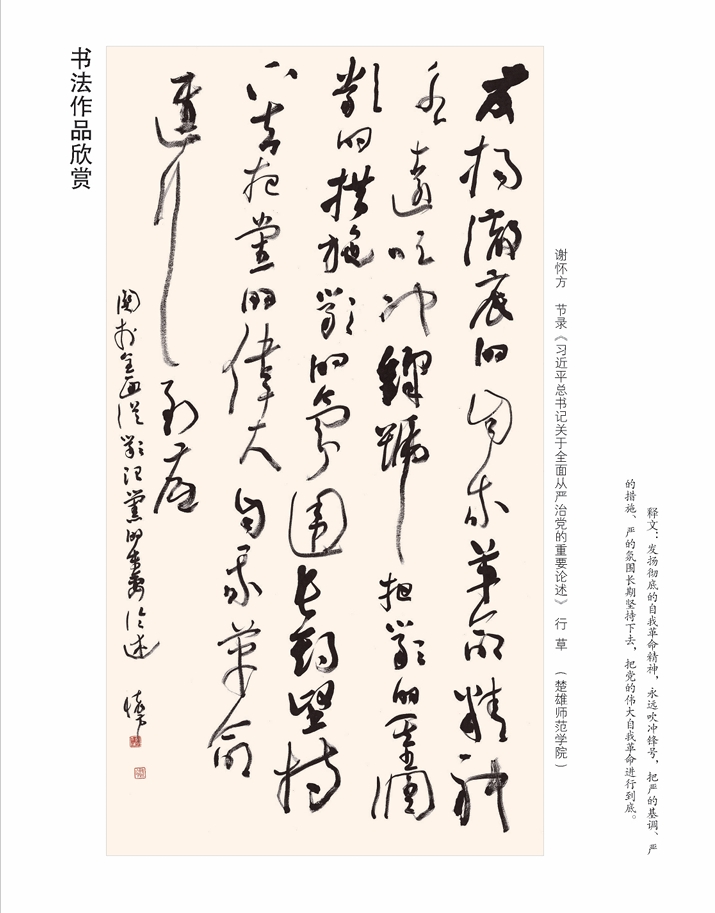 书法作品欣赏
发扬徹底的自我革命精神
永遠吹冲鋒號把嚴的基調
嚴的措施嚴的氛圍長期堅持
下去把黨的偉大自我革命
進行到底
關於全面從嚴治黨的重要论述 懷方
谢怀方 节录《习近平总书记关于全面从严治党的重要论述》 行草 （楚雄师范学院）
释文：发扬彻底的自我革命精神，永远吹冲锋号，把严的基调、严
的措施、严的氛围长期坚持下去，把党的伟大自我革命进行到底。